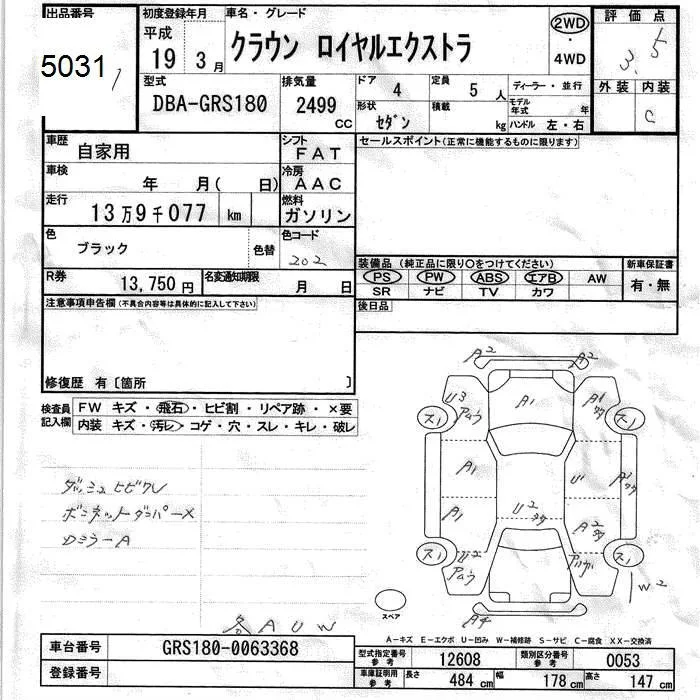 出品番号
5031
初度登録年月
平成
19 3月
車名・グレード
クラウン ロイヤルエクストラ
2WD
・
4WD
評価点
3.5
外装 内装
C
型式
DBA-GRS180
排気量
2499
CC
ドア 4
定員 5人
形状 セダン
積載 kg
ディーラー・並行
モデル年式 年
ハンドル 左・右
車歴
自家用
シフト
FAT
セールスポイント(正常に機能するものに限ります)
車検
年 月( 日)
冷房
AAC
走行
13万9千077 km
燃料
ガソリン
色
ブラック
色替
色コード
202
装備品(純正品に限り〇をつけてください)
新車保証書
PS PW ABS エアB AW
SR ナビ TV カワ
有・無
R券
13,750円
名変通知期限
月 日
後日品
注意事項申告欄(不具合内容等は具体的に記入して下さい)
修復歴 有〔箇所 〕
検査員記入欄
FW キズ・飛石・ヒビ割・リペア跡・×要
内装 キズ・汚レ・コゲ・穴・スレ・キレ・破レ
ダッシュヒビワレ
ボンネットダンパーX
ロミラーA
A2 A2
A1
U3
A1
ス1 ス1
A1
U1
A1
U2
A2
ス1 ス1
U2
W2
A4
スペア
A U W
A-キズ E-エクボ U-凹み W-補修跡 S-サビ C-腐食 XX-交換済
車台番号
GRS180-0063368
型式指定番号 参考
12608
類別区分番号 参考
0053
登録番号
車庫証明用 参考
長さ 484 cm
幅 178 cm
高さ 147 cm